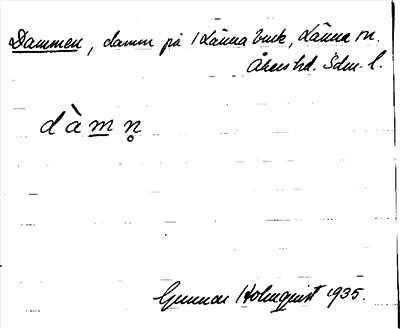 Dammen, damm på Länna bruk, Länna sn.
Åkers hd. Sdm. l.
dàmn̥
Gunnar Holmquist 1935.